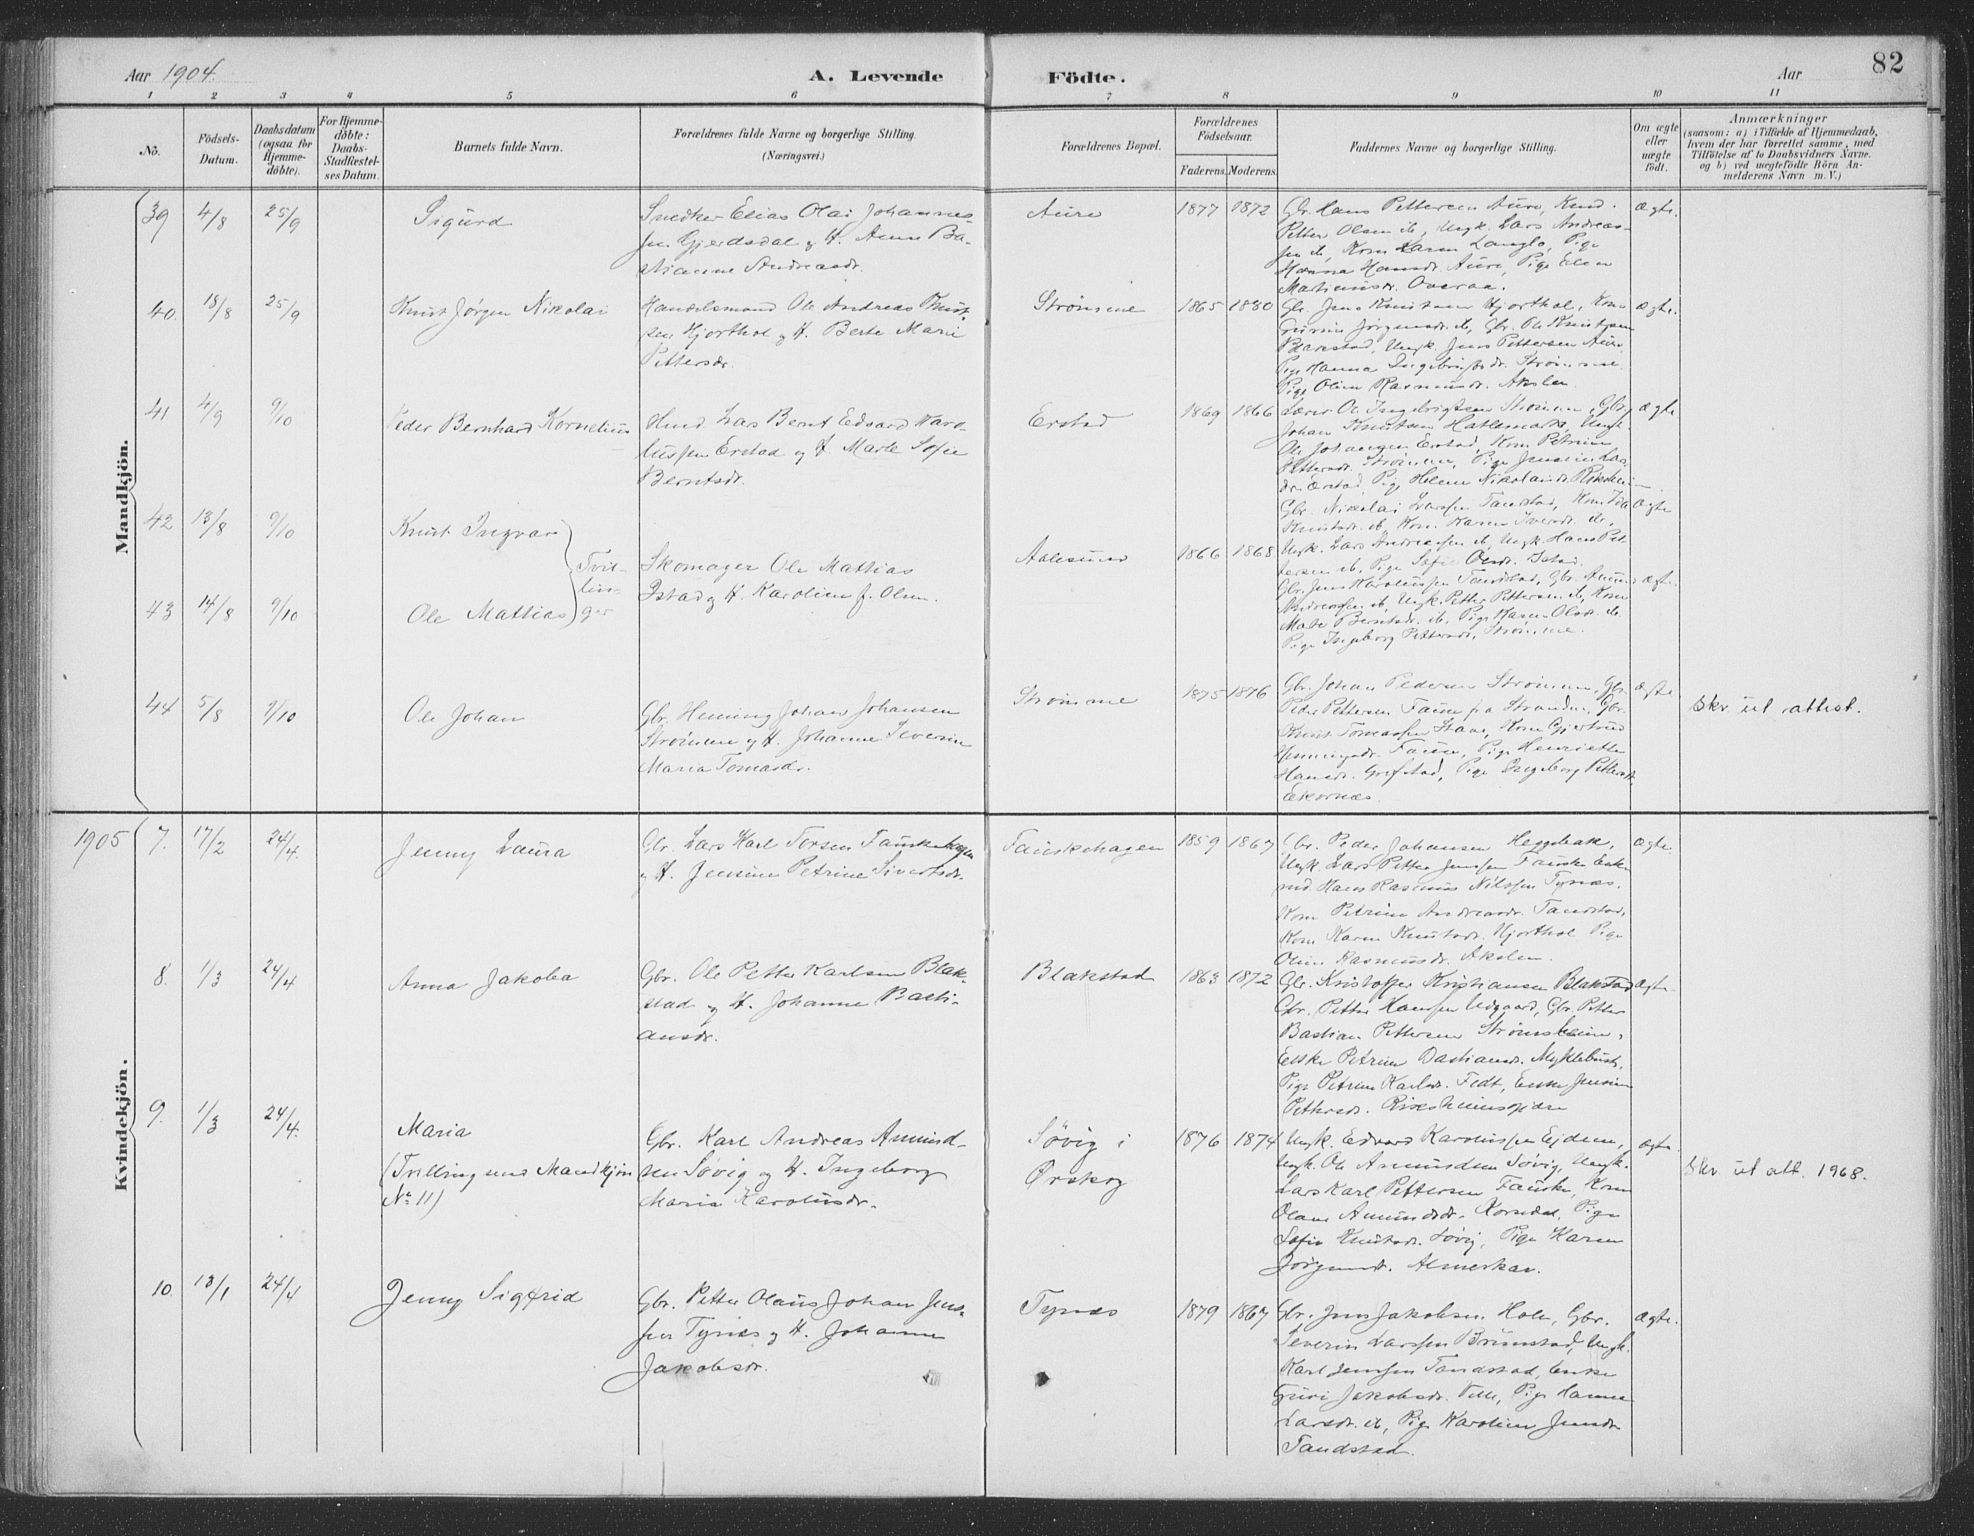 Aar 1904. A. Levende Födte. Aar 82
1 2 3 4 5 6 7 8 9 10 11
No.
Födsels-
Datum.
Daabsdatum
(ogsaa for
Hjemme-
döbte).
For Hjemme-
döbte:
Daabs-
Stadfæstel-
ses Datum.
Barnets fulde Navn.
Forældrenes fulde Navne og borgerlige Stilling.
(Næringsvei.)
Forældrenes Bopæl.
Forældrenes
Födselsaar.
Faderens. Moderens.
Faddernes Navne og borgerlige Stilling.
Om ægte
eller
uægte
födt.
Anmærkninger
(saasom: a) i Tilfælde af Hjemmedaab,
hvem der har forrettet samme, med
Tilföielse af to Daabsvidners Navne.
og b) ved uægtefödte Börn An-
melderens Navn m. V.)
Mandkjön.
39 4/8 25/9 Sigurd
Snedker Elias Olai Johannes-
sen Gjerdsdal og H. Anne Ba-
rianne Andreasdr.
Aure 1877 1872
Gbr. Hans Pettersen Aure, Kand.
Petter Olsen do, Ungk. Lars Andreas-
sen do, Kone Karen Langlo, Pige
Hanna Hansdr. Aure, Pige Elen
Martinusdr. Overaa.
ægte.
40. 18/8 25/9 Knut Jørgen Nikolai
Handelsmand Ole Andreas Knut-
sen Hjorthol og H. Berte Marie
Pettersdr.
Strømme 1865 1880
Gbr. Jens Knutsen Hjorthol, Kone
Gurine Jørgensdr. do, Gbr. Ole Knutsen
Blakstad, Ungk. Jens Pettersen Aure,
Pige Hanna Ingebrigtsdr. Strømme
Pige Oline Rasmusdr. Akslen.
ægte.
41 4/9 9/10 Peder Bernhard Kornelius
Gmd. Lars Bernt Edvard Karo-
liussen Erstad og H. Marte Sofie
Berntsdr.
Erstad 1869 1866
Lærer Ole Ingebrigtsen Strømme, Gbr.
Johan Knutsen Hatlemark, Ungk.
Ole Johansen Erstad, Kone Petrine
Pettersdr. Strømme, Pige Jensine Lars-
dr. Erstad, Pige Helene Nikolaisdr.
ægte
42 13/8 9/10 Knut Ingvar
43 14/8 9/10 Ole Mattias
Tvil-
lin-
ger
Skomager Ole Mattias
Istad og H. Karoline f. Olsen.
Aalesund 1866 1868
Gbr. Nikolai Larssen Tandstad, Kone Ida
Knutsdr. do, Kone Karen Iversdr. do,
Ungk. Lars Andreassen do, Ungk. Hans Pet-
tersen do, Pige Sofie Olsdr. Istad.
ægte
Gbr. Jens Karolussen Tandstad, Gbr. Amund
Andreassen do, Ungk. Petter Pettersen do, Kone
Mate Berntsdr. do, Pige Karen Olsdr. do
Pige Ingeborg Pettersdr. Strømme.
ægte
44 5/8 9/10 Ole Johan
Gbr. Heming Johan Johansen
Strømme og H. Johanne Severine
Maria Tomasdr.
Strømme 1875 1876
Gbr. Johan Pedersen Strømme, Gbr.
Peder Pettersen Fause fra Stranden, Gbr.
Knut Tomassen Staae, Kone Gjertrud
Hemingsdr. Fause, Pige Henriette
Hansdr. Grefstad, Pige Ingeborg Pettersdr.
Ekornæs.
ægte.
Skr ut attest.
1905
Kvindekjön.
7. 17/2 24/4. Jenny Laura
Gbr. Lars Karl Torsen Fauskehagen
og H. Jensine Petrine Sivertsdr.
Fauskehagen 1859 1867
Gbr. Peder Johansen Heggebak,
Ungk. Lars Petter Jenssen Fauske Enke-
md. Hans Rasmus Nilssen Tynæs.
Kone Petrine Andreasdr. Tandstad,
Kone Karen Knutsdr. Hjorthol Pige
Oline Rasmusdr. Akslen.
ægte.
8. 1/3 24/4 Anna Jakoba
Gbr. Ole Petter Karlsen Blak-
stad og H. Johanne Basti-
ansdr.
Blakstad 1863 1872
Gbr. Kristoffer Kristiansen Blakstad
Gbr. Petter Hanssen Udgaard, Gbr. Petter
Bastian Pettersen Strømsheim,
Enke Petrine Bastiansdr. Myklebust,
Pige Petrine Karlsdr. Fedt, Enke Jensine
Pettersdr.
ægte.
9. 1/3 24/4. Maria
(Trilling med Mandkjøn
No 11)
Gbr. Karl Andreas Amund-
sen Søvig og H. Ingeborg
Maria Karolusdr.
Søvig i
Ørskog
1876 1874
Ungk. Edvard Karolussen Ejdem,
Ungk. Ole Amundsen Søvig, Ungk.
Lars Karl Pettersen Fauske, Kone
Olave Amundsdr. Korsedal, Pige
Sofie Knutsdr. Søvig, Pige Karen
Jørgensdr. Almerkar.
ægte.
Skr ut att. 1968.
10. 13/1 24/4 Jenny Sigfrid
Gbr. Petter Olaus Johan Jens-
sen Tynæs og H. Johanne
Jakobsdr.
Tynæs 1879 1867
Gbr. Jens Jakobsen Hole, Gbr.
Severin Larssen Brunstad, Ungk.
Karl Jenssen Tandstad, Enke
Guri Jakobsdr. Velle, Pige Hanna
Larsdr. do, Pige Karoline Jensdr.
Tandstad.
ægte.